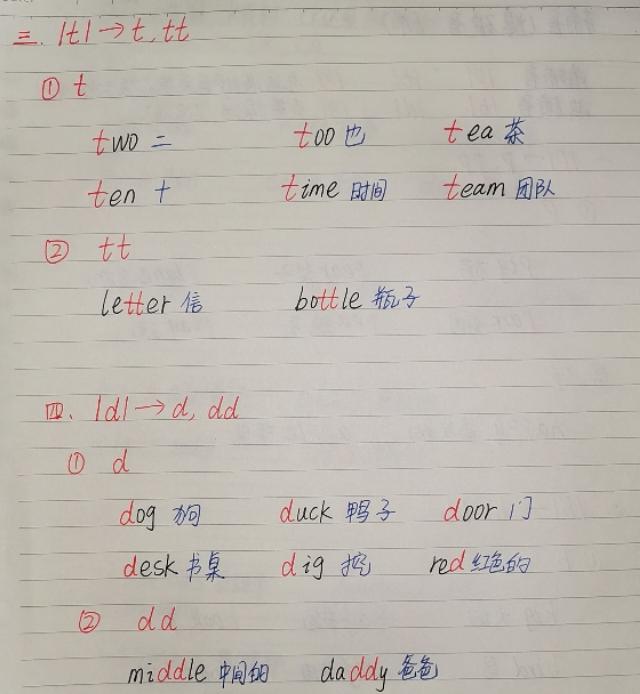 三. |t|→t, tt
① t
two 二 too 也 tea 茶
ten 十 time 时间 team 团队
② tt
letter 信 bottle 瓶子
四. |d|→d, dd
① d
dog 狗 duck 鸭子 door 门
desk 书桌 dig 挖 red 红色的
② dd
middle 中间的 daddy 爸爸